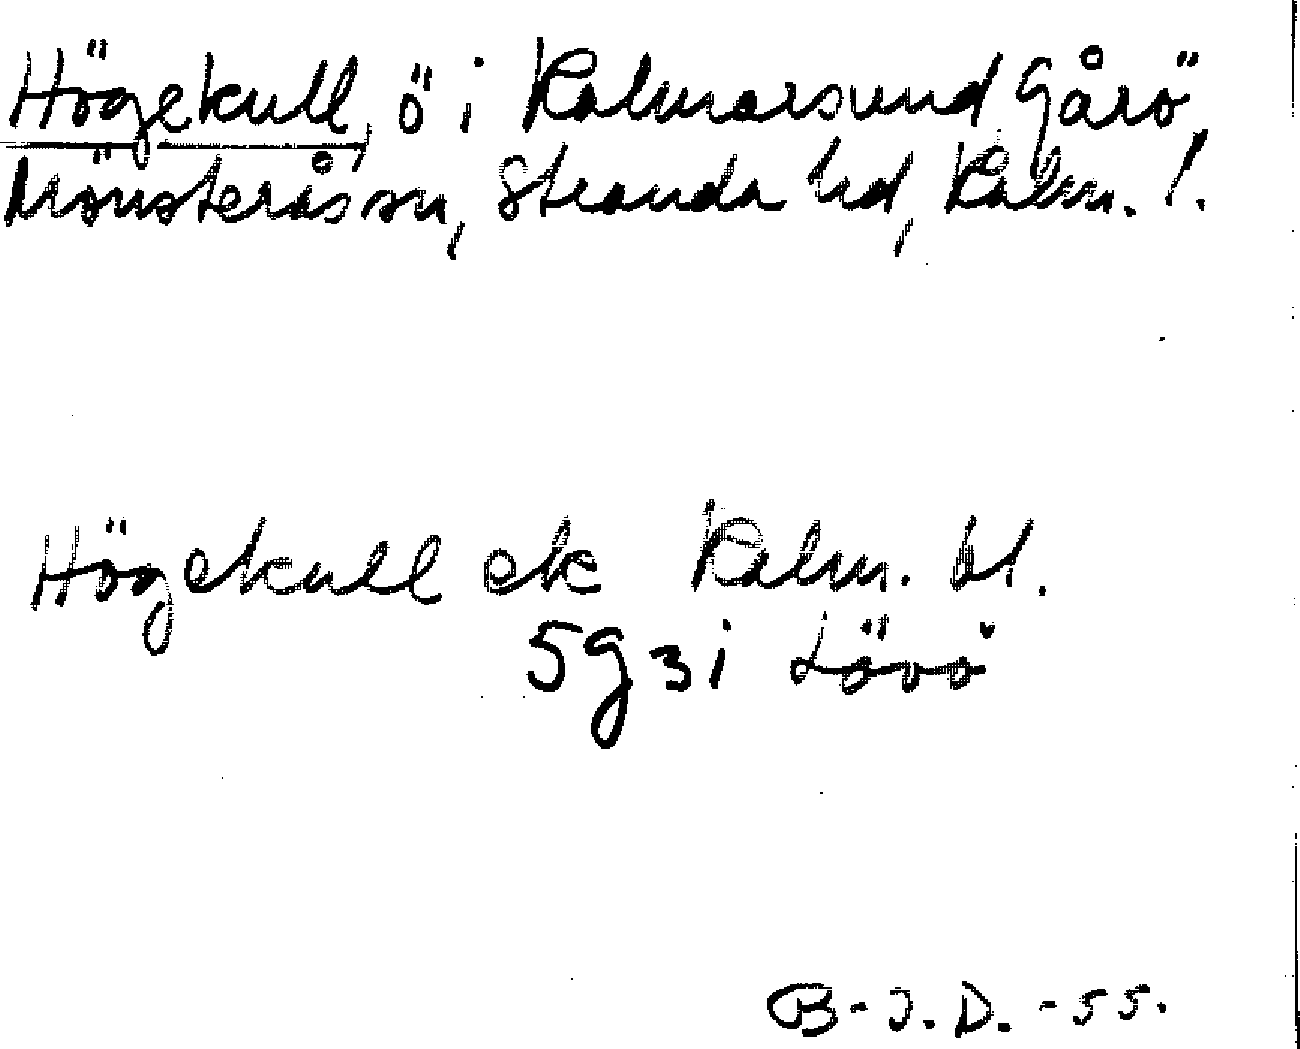 Högekull, ö i Kalmarsund Gårö,
Mönsterås sn, Stranda hd, Kalm. l.
Högekull ek Kalm. bl.
5g3i Lövö
B-J.D. -55.